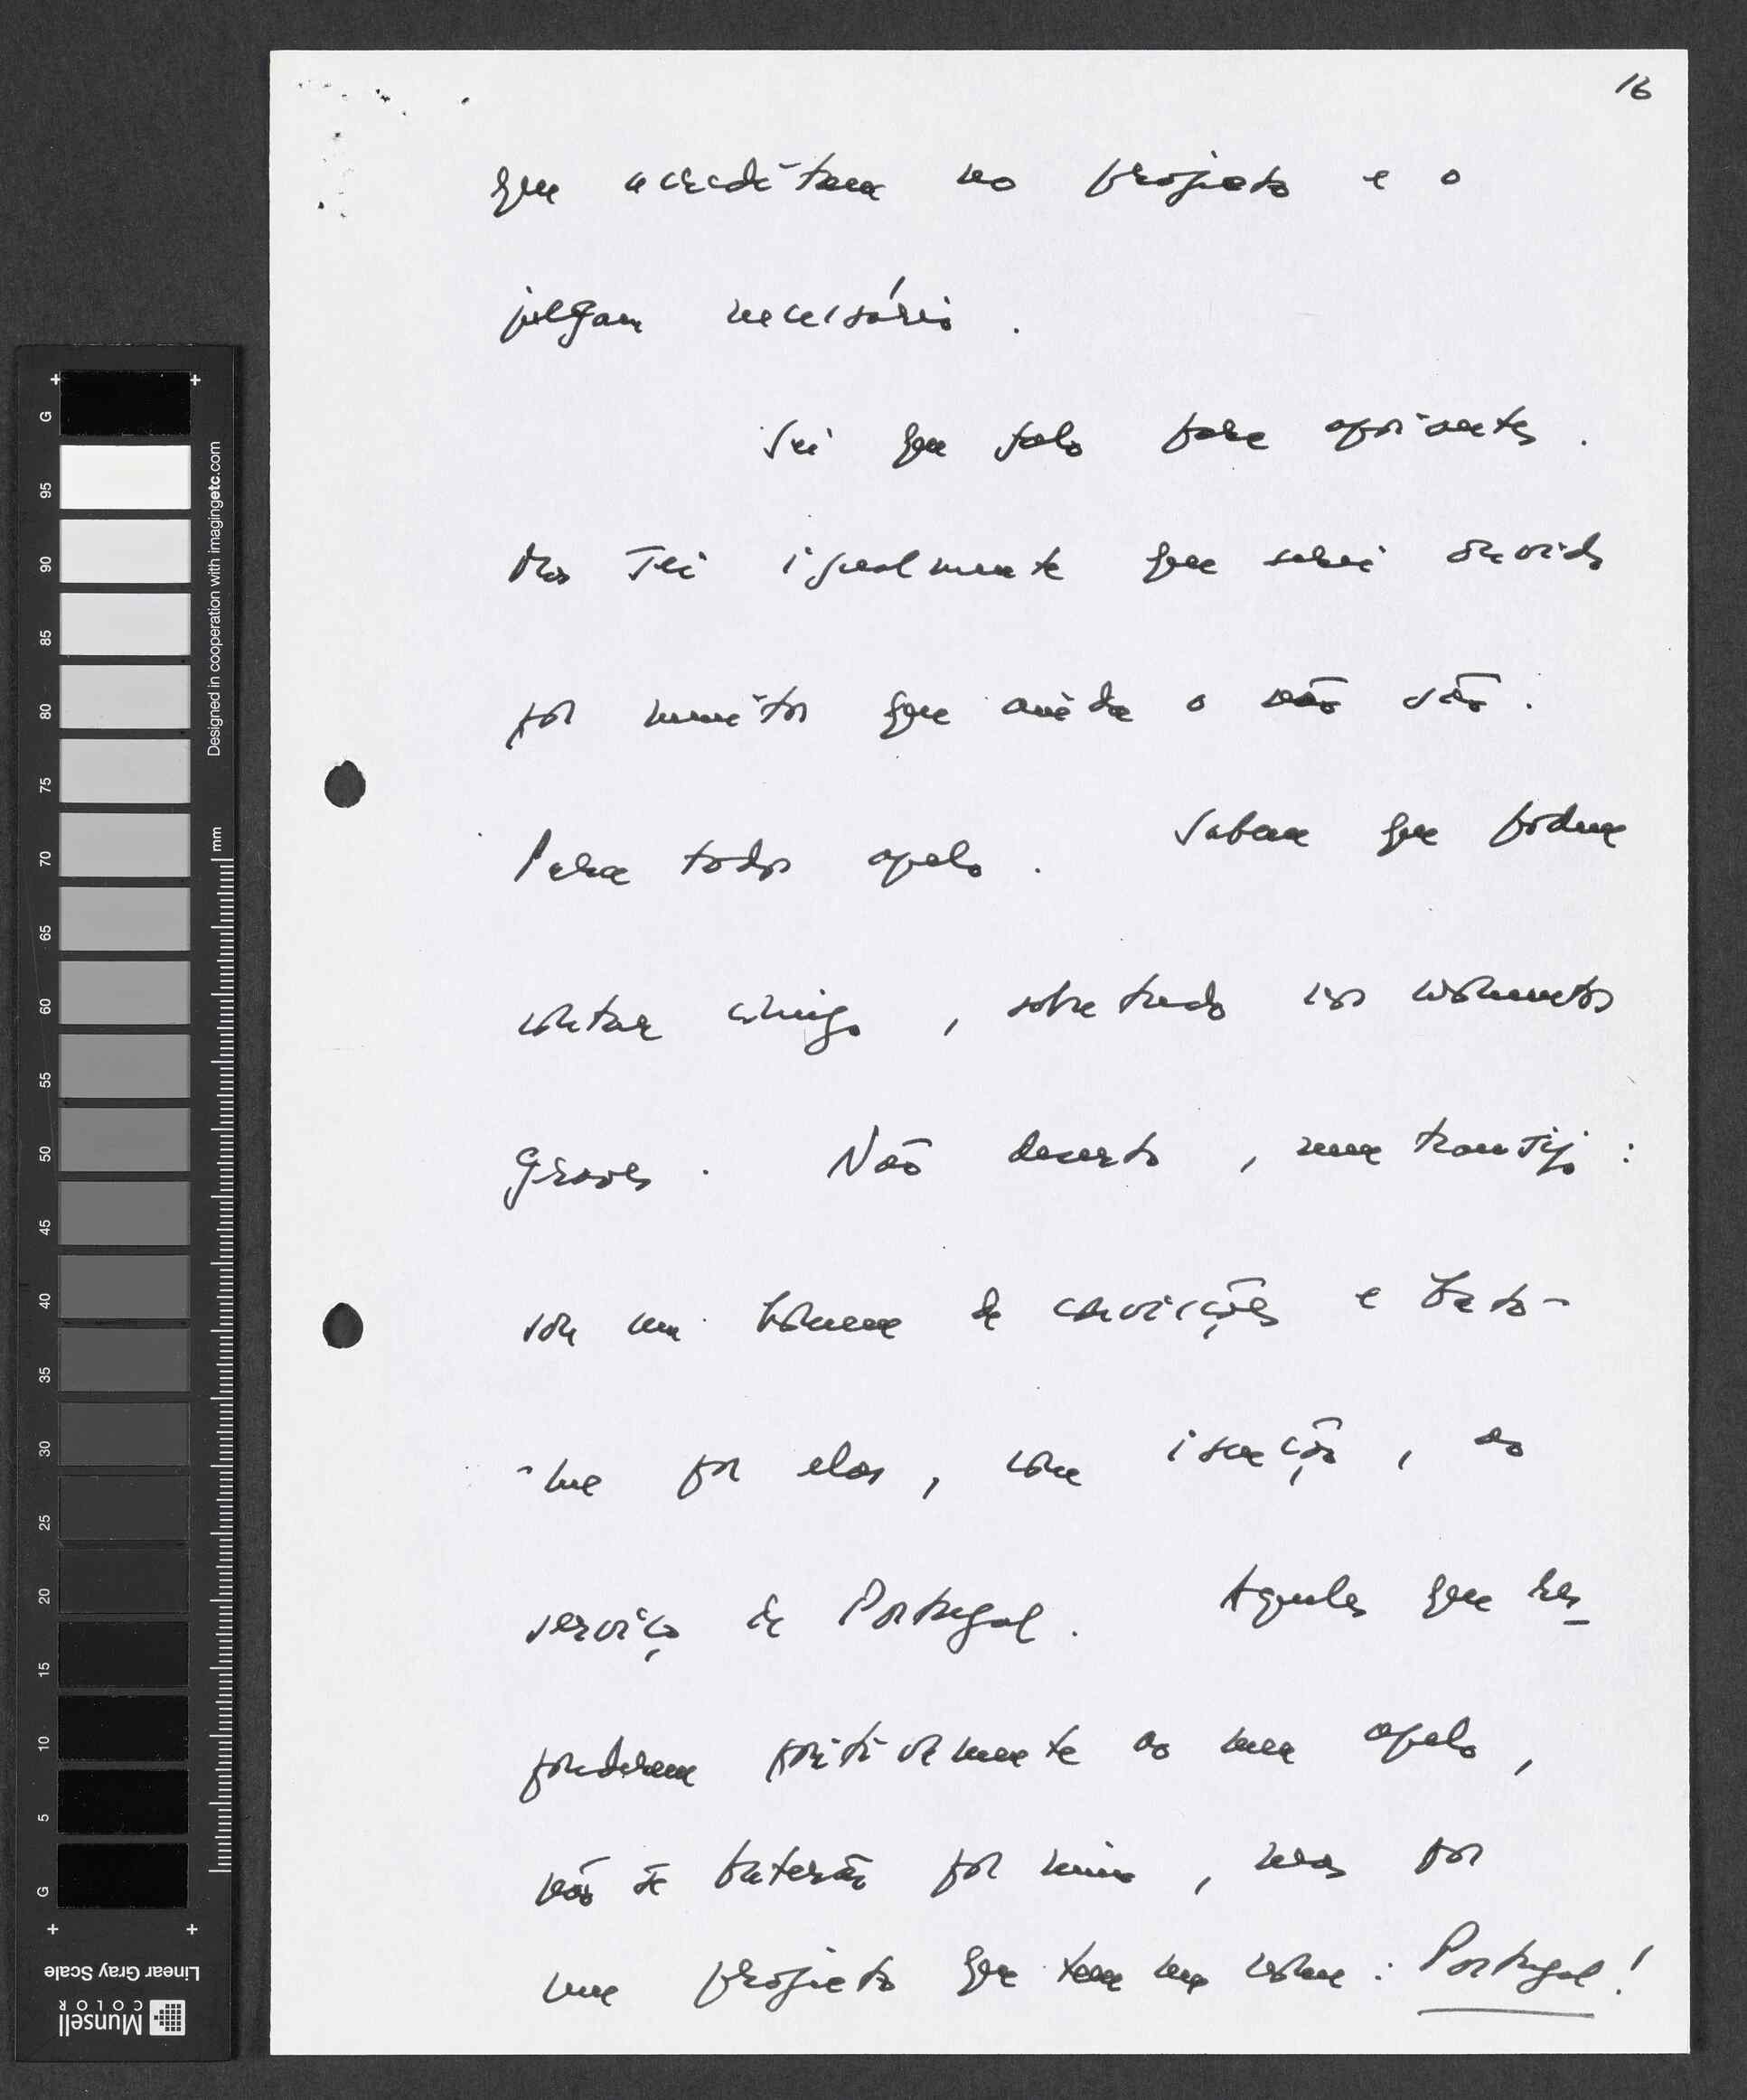 16
que acreditam no projecto e o
julgam necessário.
Sei que falo para apoiantes.
Mas sei igualmente que serei ouvido
por muitos que ainda o não são.
Para todos apelo. Sabem que podem
contar comigo, sobretudo nos momentos
graves. Não deserto, nem transijo:
sou um homem de convicções e bato-
-me por elas, com isenção, ao
serviço de Portugal. Aqueles que res-
ponderem positivamente ao meu apelo,
não se baterão por mim, mas por
um projecto que tem um nome: Portugal!
G
95
90
85
80
75
70
65
60
55
50
45
40
35
30
25
20
15
10
5
G
Designed in cooperation with imagingetc.com
mm
Linear Gray Scale
Munsell
COLOR